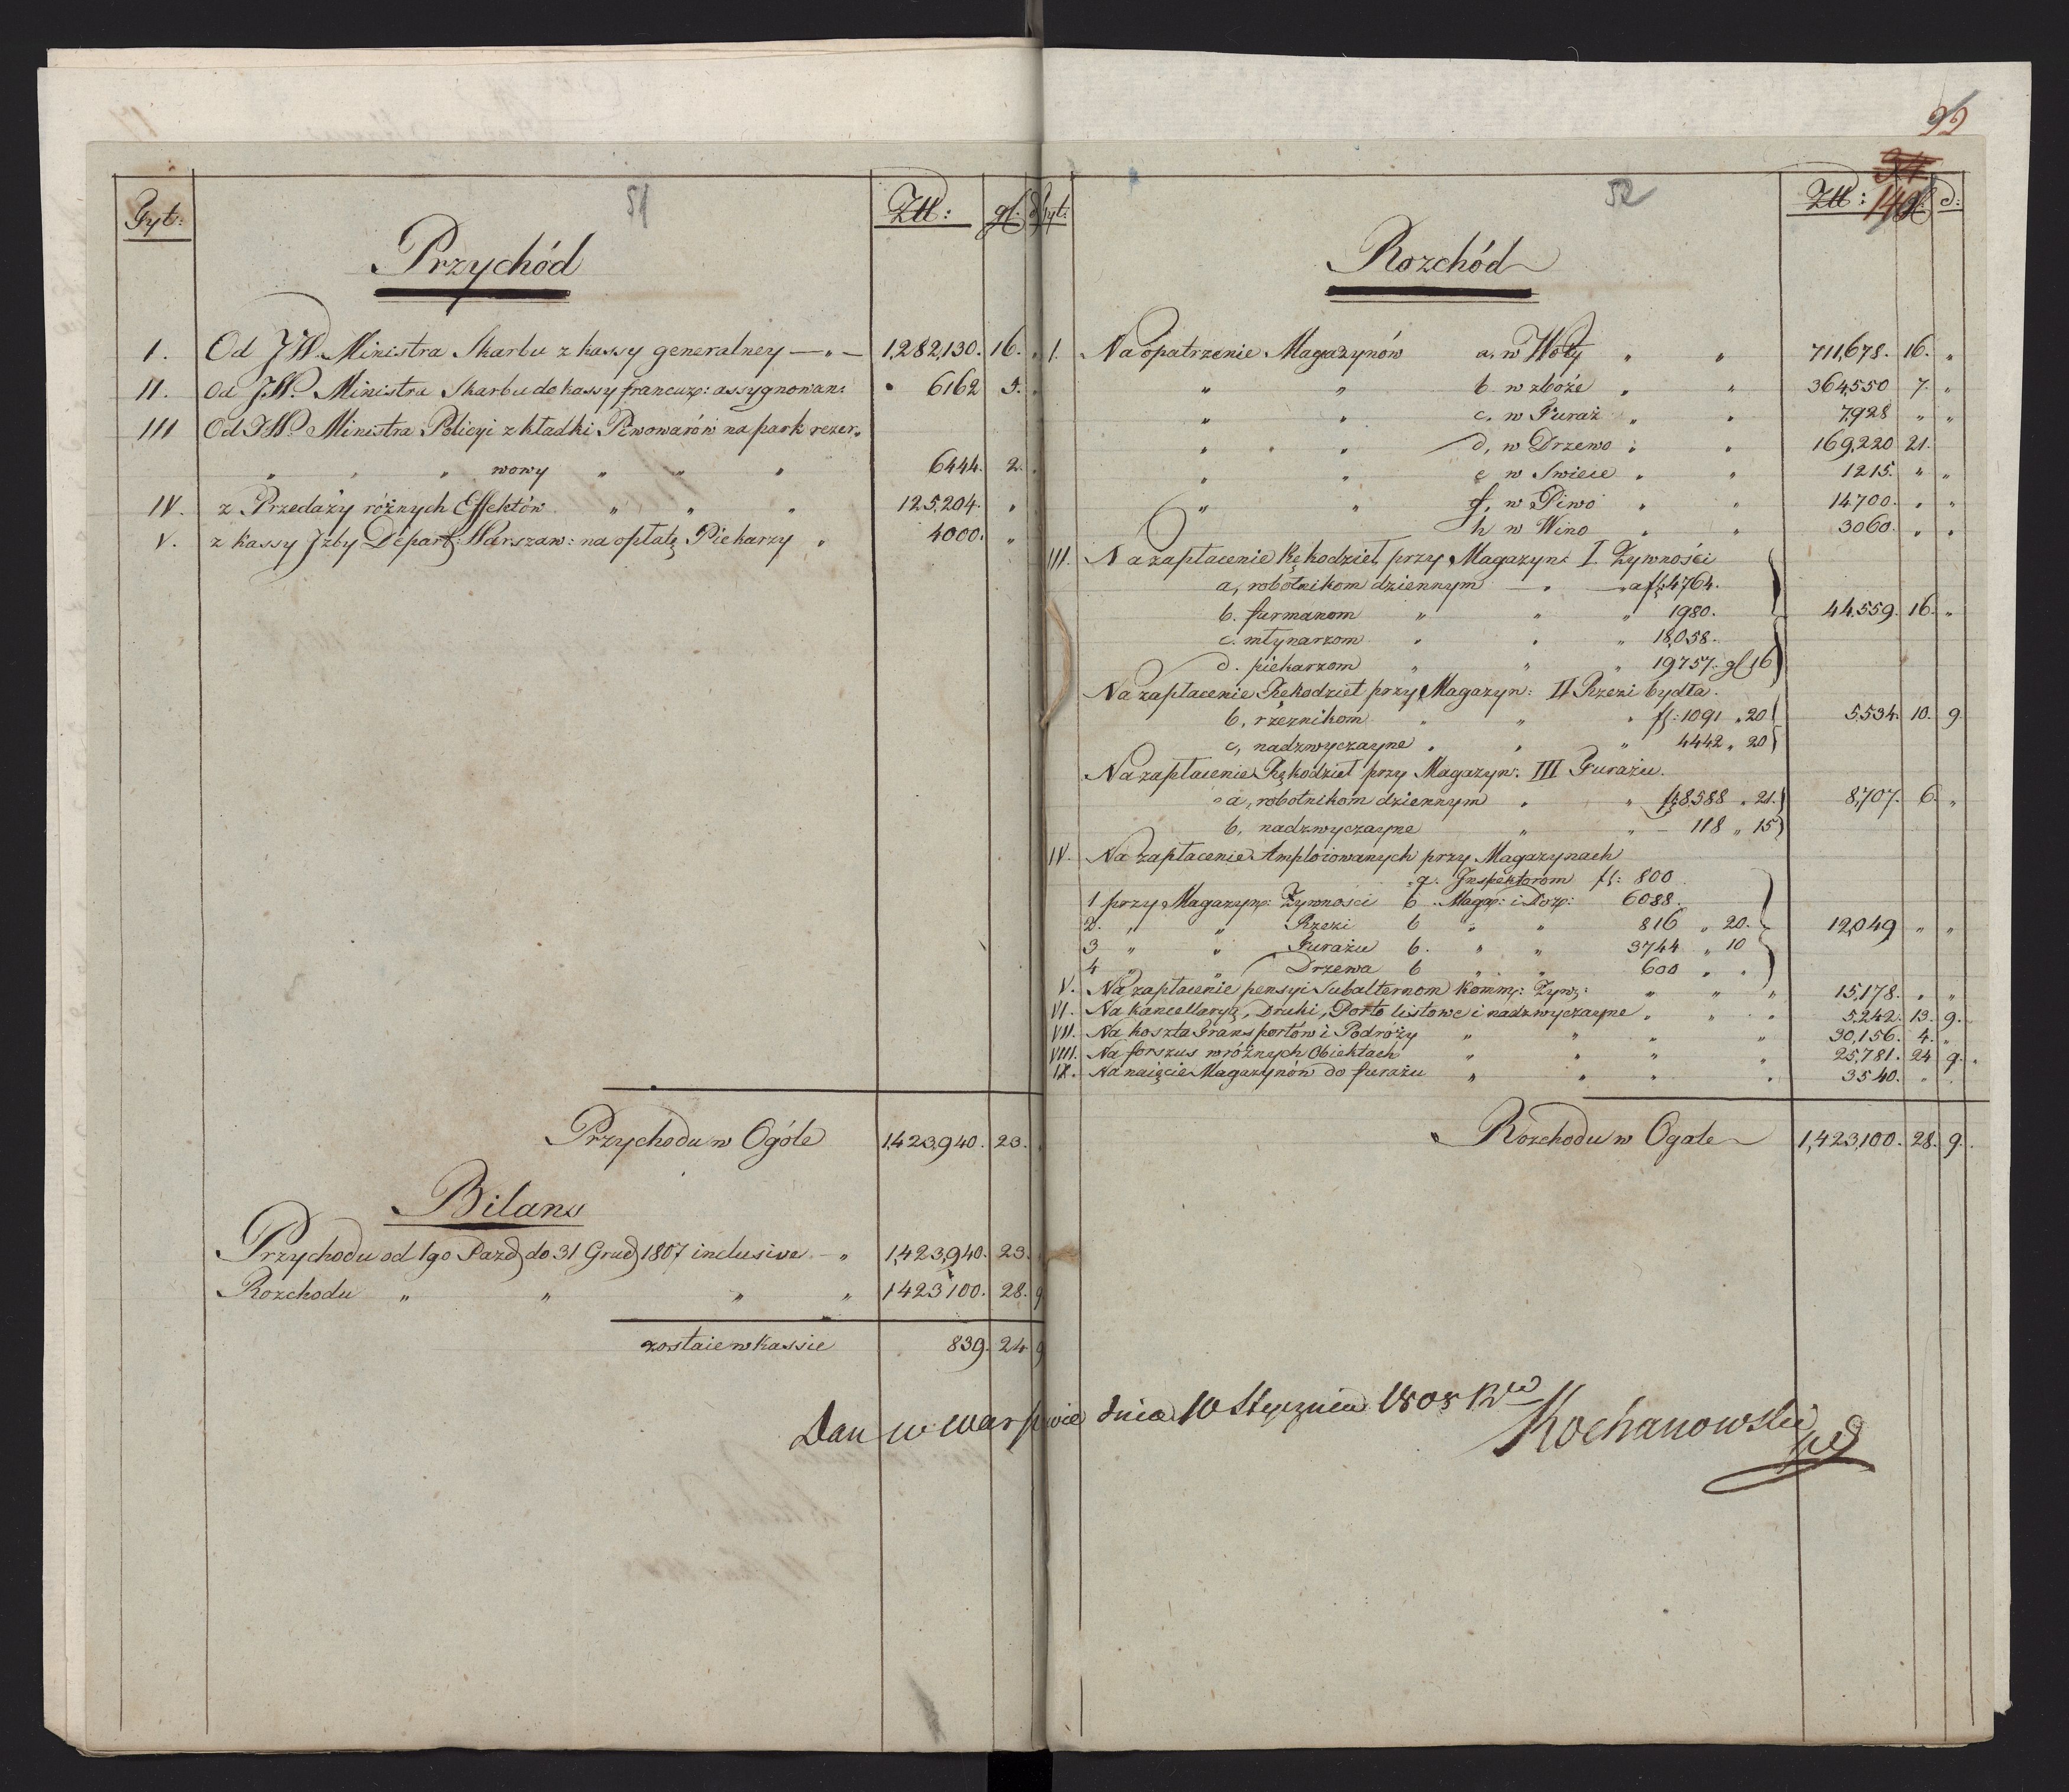 51
Tyt: Ztt: gl.
Przychód
I. Od JW. Ministra Skarbu z kassy generalney — „ — 1,282,130. 16. „
II. Od JW. Ministra Skarbu do kassy francuz: assygnowan: 6162 5. „
III Od JW. Ministra Policyi z kładki Piwowarów na park rezer„
„ „ „ wowy „ „ „ 6444. 2. „
IV. z Przedaży różnych Effektów „ „ „ 125,204. „
V. z kassy Izby Depart: Warszaw: na opłatę Piekarzy „ 4000. „
Przychodu w Ogóle 1,423,940. 23.
Bilans
Przychodu od 1go Pazd do 31 Grud 1807 inclusive — „ 1,423,940. 23.
Rozchodu „ „ „ „ 1423100. 28. 9
zostaie w kassie 839. 24 9
99
34.
140
52
Tyt: Ztt: gl: d:
Rozchód
I. Na opatrzenie Magazynów a, w Woły „ „ 711,678. 16. „
„ „ b w zboże „ „ 364,550 7. „
„ „ c, w Furaż „ „ 7,928 „ „
„ „ „ d, w Drzewo „ „ 169,220 21.
„ „ e w Swiece „ „ 1215. „ „
„ „ f, w Piwo „ „ 14,700. „ „
h w Wino „ „ 3060. „ „
III. Na zapłacenie Rękodzieł przy Magazyn: I. Zywności
a, robotnikom dziennym — „ — „ a fl: 4764.
b. furmanom „ „ „ 1980. 44,559. 16. „
c. młynarzom „ „ „ 18,058.
d. piekarzom „ „ „ 19757. gl 16
Na zapłacenie Rękodzieł przy Magazyn: II Rzezi bydła.
b, rzeznikom „ „ „ fl: 1091 „ 20 5,534. 10. 9
c, nadzwyczayne „ „ „ 4442 „ 20
Na zapłacenie Rękodzieł przy Magazyn: III Furażu.
a, robotnikom dziennym „ „ fl: 8588 „ 21. 8,707. 6. „
b, nadzwyczayne „ „ — 118 „ 15
IV. Na zapłacenie Amploiowanych przy Magazynach
a. Inspektorom fl: 800
1 przy Magazyn: Zywnosci b. Magaz: i Doz: 6088.
2. „ „ Rzezi b „ „ 816 „ 20. 12,049 „ „
3 „ „ Furażu b. „ „ 3744 „ 10
4 „ „ Drzewa b „ „ 600 „ „
V. Na zapłacenie pensyi Subalternom Komm: Zyw: „ „ „ 15,178. „ „
VI. Na kancellaryą, Druki, Porto listowe i nadzwyczayne „ „ „ 5,242. 13. 9.
VII. Na koszta Transportów i Podróży „ „ „ „ 30,156. 4. „
VIII. Na forszus w różnych Obiektach „ „ „ „ 25,781. 24 9.
IX. Na naięcie Magazynów do furażu „ „ „ „ 3540. „
Rozchodu w Ogole 1,423,100. 28. 9.
Dan w Warszawie dnia 10 Stycznia 1808 Rw
Kochanowski